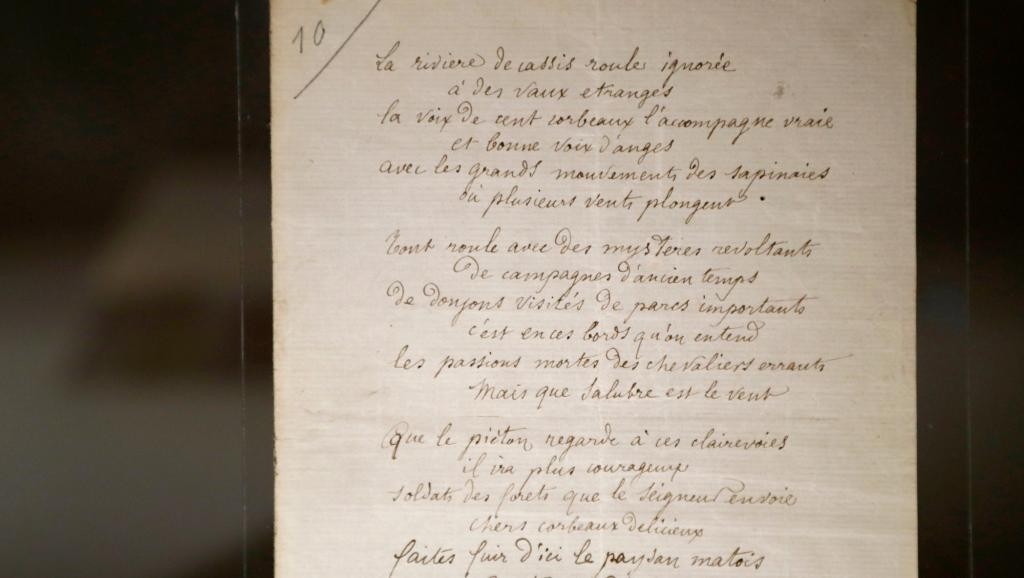 10
La rivière de cassis roule ignorée
à des vaux etranges
la voix de cent corbeaux l'accompagne vraie
et bonne voix d'anges
avec les grands mouvements des sapinaies
où plusieurs vents plongent.
Tout roule avec des mystères revoltants
De campagnes d'ancien temps
De donjons visités de parcs importants
c'est en ces bords qu'on entend
les passions mortes des chevaliers errants
Mais que salubre est le vent
Que le piéton regarde à ces clairevoies
il ira plus courageux
soldats des forets que le Seigneur envoie
chers corbeaux delicieux
faites fuir d'ici le paysan matois